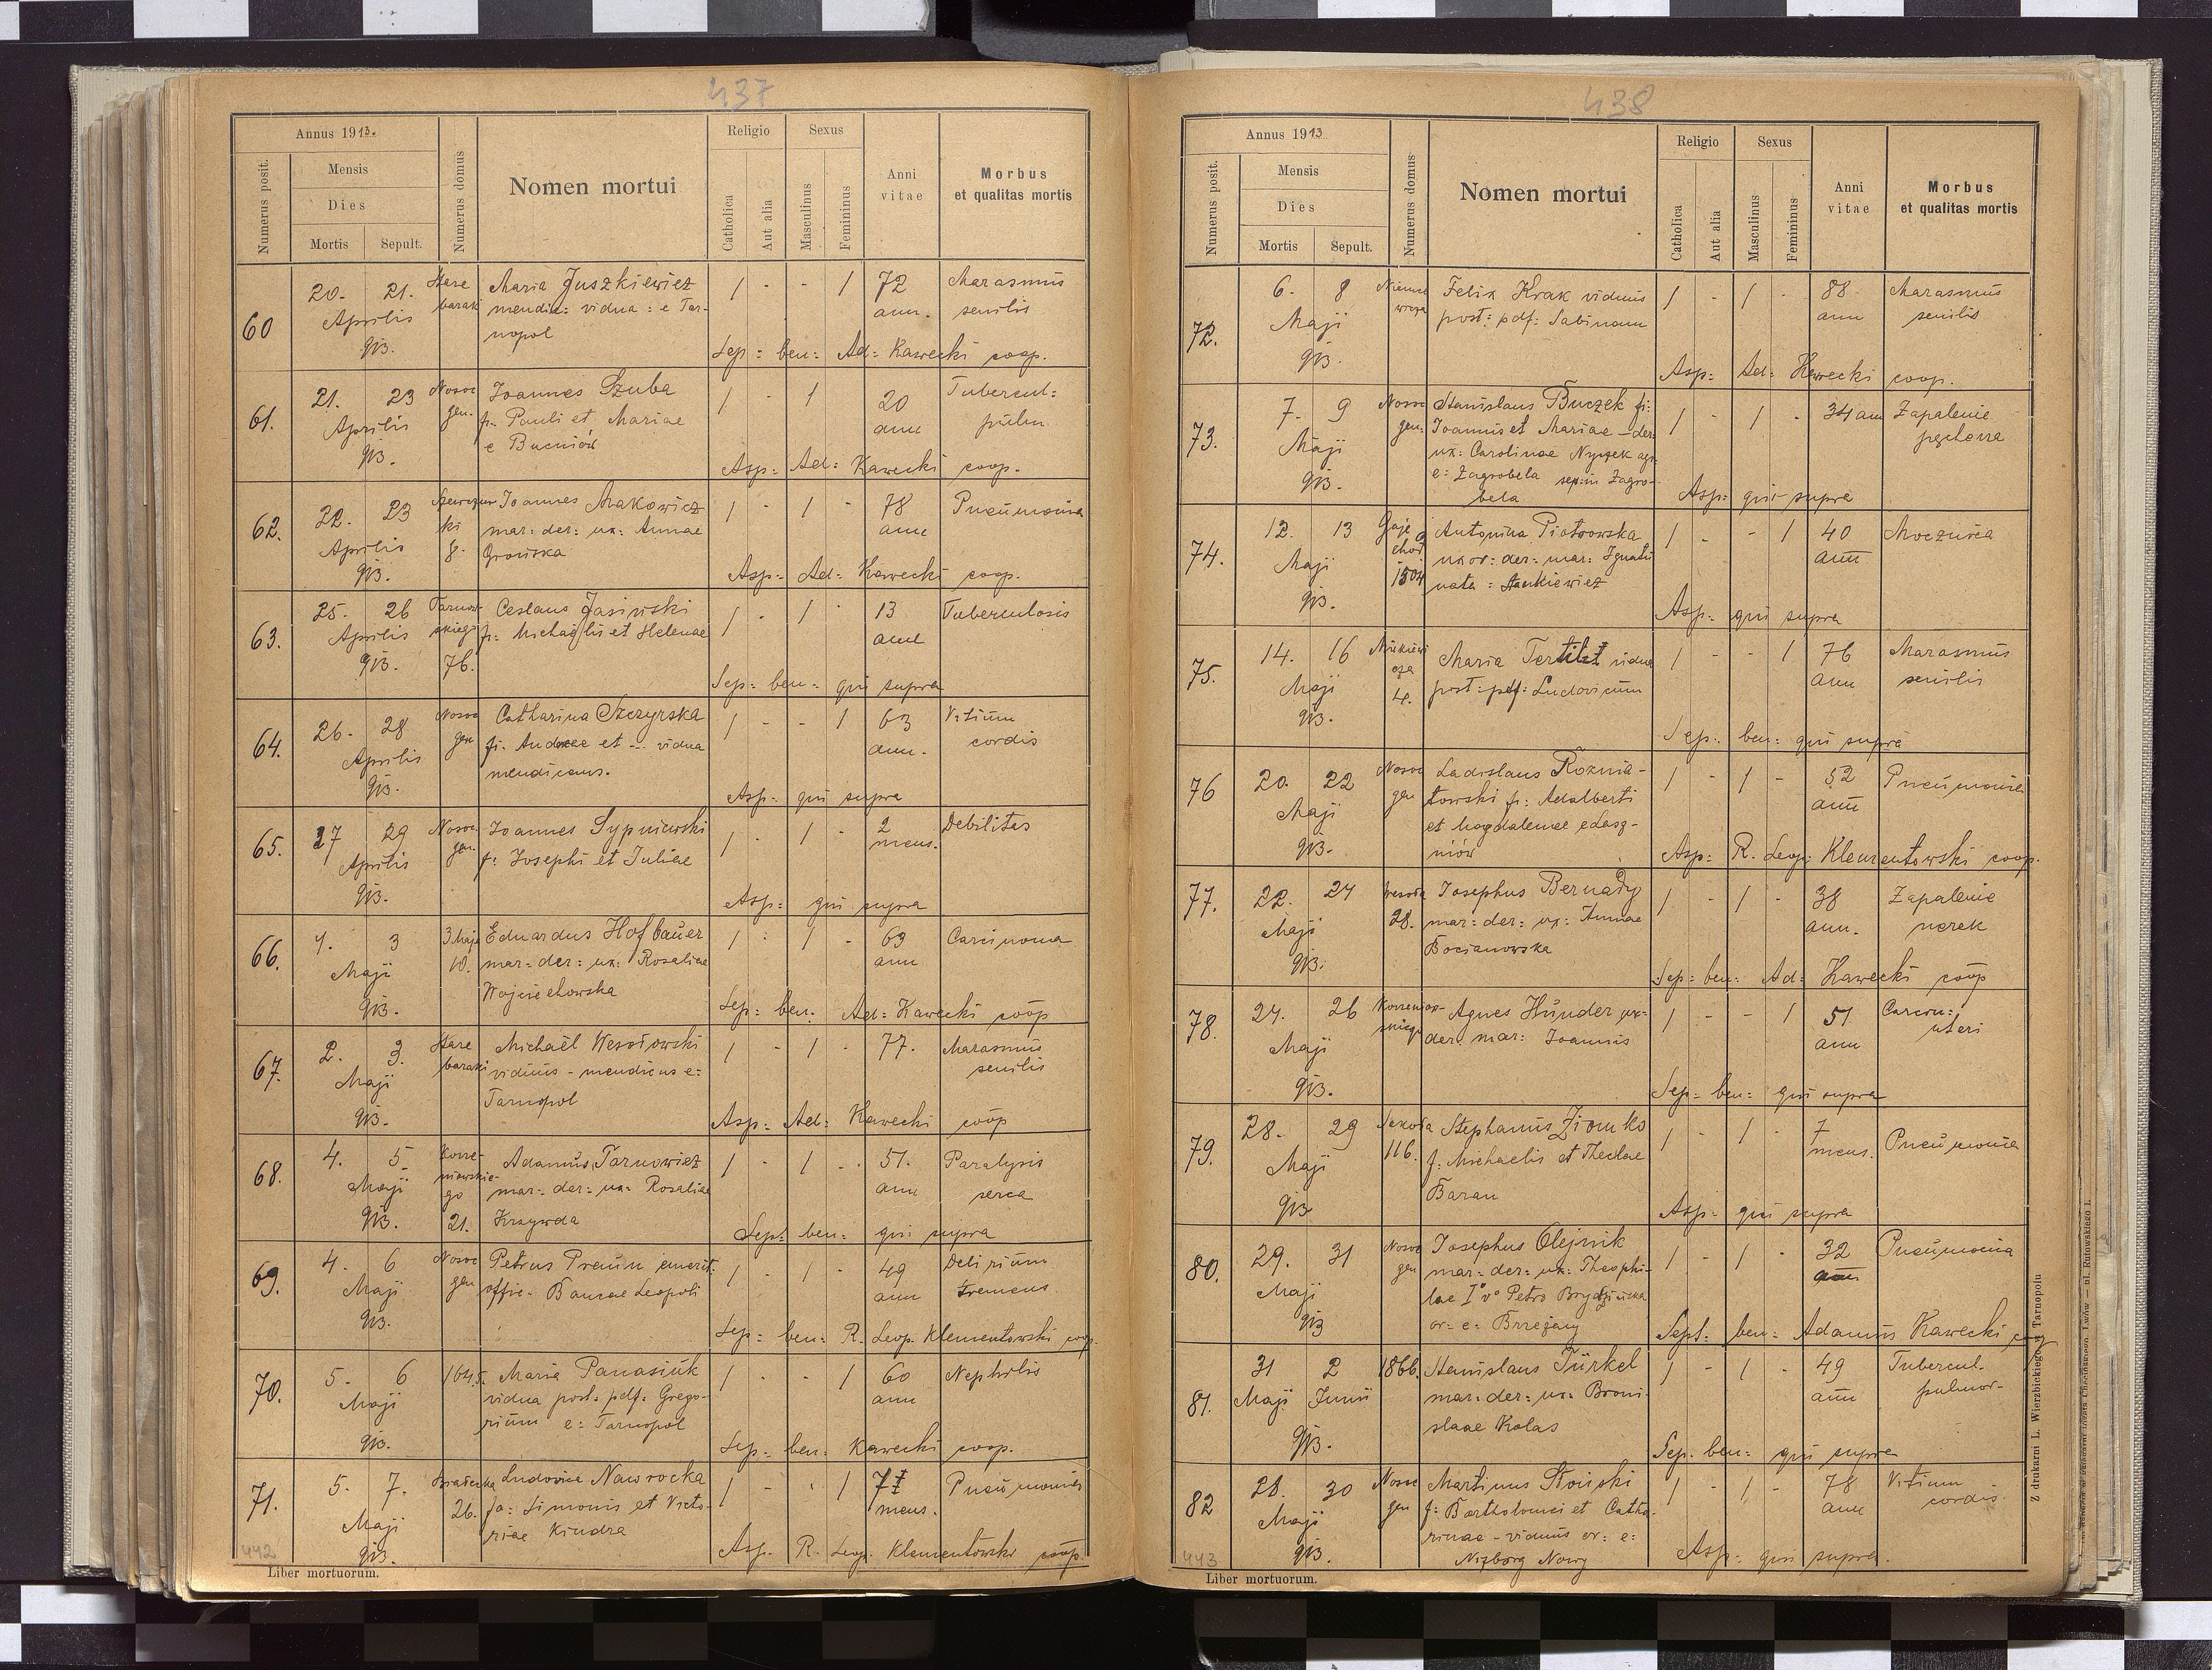 437
Annus 1913.
Numerus posit.
Mensis
Dies
Mortis Sepult.
Numerus domus
Nomen mortui
Religio
Catholica
Aut alia
Sexus
Masculinus
Femininus
Anni
vitae
Morbus
et qualitas mortis
60
20. 21.
Aprilis
913.
Stare
baraki
Maria Juszkiewicz
mendic: vidua: e Tar-
nopol
1 - - 1
72
ann.
Marasmus
senilis
Sep: ben: Ad: Kawecki coop.
61.
21. 23
Aprilis
913.
Nosoc
gen.
Joannes Szuba
fi. Pauli et Mariae
e Bucniów
1 - 1
20
ann
Tubercul:
pulm.
Asp: Ad: Kawecki coop.
62.
22. 23
Aprilis
913.
ki
8.
Joannes Makowicz
mar: der: ux: Annae
Grońska
1 - 1 -
78
ann
Pneumonia
Asp: Ad: Kawecki coop.
63.
25. 26
Aprilis
913.
Tarnow-
skiego
76.
Ceslaus Jasiński
fi: Michaëlis et Helenae
1 - 1 -
13
ann
Tuberculosis
Sep: ben: qui supra
64.
26. 28
Aprilis
913.
Nosoc
gen
Catharina Szczyrska
fi. Andreae et ... vidua
mendicans.
1 - - 1
63
ann.
Vitium
cordis
Asp: qui supra
65.
27 29
Aprilis
913.
Nosoc
gen.
Joannes Sypniewski
f: Josephi et Juliae
1 - 1 -
2
mens.
Debilitas
Asp: qui supra
66.
1. 3
Maji
913.
3 Maja
10.
Eduardus Hofbauer
mar: der: ux: Rosaliae
Wojciechowska
1 - 1 -
69
ann
Carcinoma
Sep: ben: Ad: Kawecki coop
67.
2. 3.
Maji
913.
Stare
baraki
Michaël Wesołowski
viduus - mendicus e:
Tarnopol
1 - 1 -
77.
Marasmus
senilis
Asp: Ad: Kawecki coop
68.
4. 5
Maji
913.
Korze-
niowskie-
go
21.
Adamus Tarnowicz
mar: der: ux: Rosaliae
Krzywda
1 - 1 -
51.
ann
Paralysis
serca
Sept: ben: qui supra
69.
4. 6
Maji
913.
Nosoc
gen
Petrus Preun emerit:
offic. Bancae Leopoli
1 - 1 -
49
ann
Delirium
tremens
Sep: ben: R. Leop. Klementowski coop.
70.
5. 6
Maji
913.
1645.
Maria Panasiuk
vidua post: pdf: Grego-
rium e: Tarnopol
1 - - 1
60
ann
Nephritis
Sep: ben: Kawecki coop.
71.
5. 7.
Maji
913.
26.
Ludovica Nawrocka
fa: Simonis et Victo-
riae Kindra
1 - - 1
7
mens.
Pneumonia
Asp. R. Leop. Klementowski coop.
442
Liber mortuorum.
438
Annus 1913
Numerus posit.
Mensis
Dies
Mortis Sepult.
Numerus domus
Nomen mortui
Religio
Catholica
Aut alia
Sexus
Masculinus
Femininus
Anni
vitae
Morbus
et qualitas mortis
72.
6. 8
Maji
913.
Felix Krak viduus
post: pdf: Sabinam
1 - 1 -
88
ann
Marasmus
senilis
Asp: Ad: Kawecki coop.
73.
7. 9
Maji
913.
Nosoc
gen:
Stanislaus Buczek fi:
Joannis et Mariae - der:
ux: Carolinae Nyczek agr:
e: Zagrobela sep: in Zagro-
bela
1 - 1 -
34 ann
Zapalenie
pęcherza
Asp: qui supra
74.
12. 13
Maji
913.
Gaje
chod
1504
Antonina Piotrowska
uxor: der: mar: Ignatii
nata: Stankiewicz
1 - - 1
40
ann
Mocznica
Asp: qui supra
75.
14. 16
Maji
913.
Mickiewi
cza
4.
Maria Tertilt vidua
post: pdf: Ludovicum
1 - - 1
76
ann
Marasmus
senilis
Sep: ben: qui supra
76
20. 22
Maji
913.
Nosoc
gen
Ladislaus Roznia-
towski f: Adalberti
et Magdalenae e Łasz-
niów
1 - 1 -
52
ann
Pneumonia
Asp: R. Leop: Klementowski coop.
77.
22. 24
Maji
913.
28.
Josephus Bernady
mar: der: ux: Annae
Bocianowska
1 - 1 -
38
ann.
Zapalenie
nerek
Sep: ben: Ad: Kawecki coop
78
24. 26
Maji
913.
Korzeniow-
skiego
Agnes Hunder ux:
der: mar: Joannis
1 - - 1
51
ann
Carcin:
uteri
Sep: ben: qui supra
79.
28. 29
Maji
913
116.
Stephanus Ziomko
f: Michaelis et Theclae
Baran
1 - 1 -
7
mens.
Pneumonia
Asp: qui supra
80.
29. 31
Maji
913
Nosoc
gen
Josephus Olejnik
mar: der: ux: Theophi-
lae Iº vº Petro Brydzińska
or: e: Brzeżany
1 - 1 -
32
ann
Pneumonia
Sept: ben: Adamus Kawecki coop
81.
31 2
Maji Junii
913.
1866.
Stanislaus Türkel
mar: der: ux: Broni
slaae Kolas
1 - 1 -
49
ann
Tubercul.
pulmor.
Sep. ben: qui supra
82
28. 30
Maji
913.
Nosoc
gen
Martinus Słoiński
f: Bartholomei et Catha-
rinae - viduus or: e:
Niżborg Nowy
1 - 1 -
78
ann
Vitium
cordis
Asp: qui supra.
443
Liber mortuorum.
Z drukarni L. Wierzbickiego w Tarnopolu